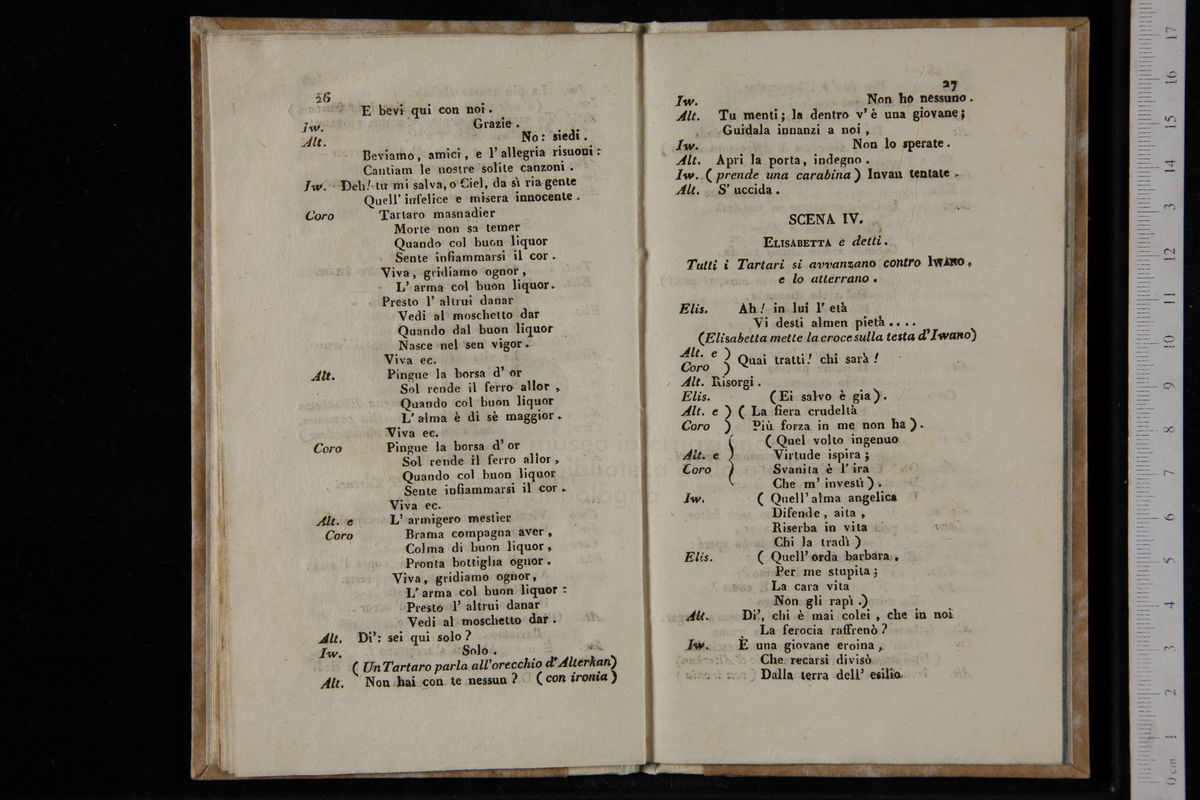 26
E bevi qui con noi.
Iw. Grazie.
Alt. No: siedi.
Beviamo, amici, e l'allegria risuoni:
Cantiam le nostre solite canzoni.
Iw. Deh! tu mi salva, o Ciel, da sì ria gente
Quell' infelice e misera innocente.
Coro Tartaro masnadier
Morte non sa temer
Quando col buon liquor
Sente infiammarsi il cor.
Viva, gridiamo ognor,
L' arma col buon liquor.
Presto l' altrui danar
Vedi al moschetto dar
Quando dal buon liquor
Nasce nel sen vigor.
Viva ec.
Alt. Pingue la borsa d' or
Sol rende il ferro allor,
Quando col buon liquor
L' alma è di sè maggior.
Viva ec.
Coro Pingue la borsa d' or
Sol rende il ferro allor,
Quando col buon liquor
Sente infiammarsi il cor.
Viva ec.
Alt. e Coro L' armigero mestier
Brama compagna aver,
Colma di buon liquor,
Pronta bottiglia ognor.
Viva, gridiamo ognor,
L' arma col buon liquor:
Presto l' altrui danar
Vedi al moschetto dar.
Alt. Di': sei qui solo?
Iw. Solo.
(Un Tartaro parla all'orecchio d'Alterkan)
Alt. Non hai con te nessun? (con ironia)
27
Iw. Non ho nessuno.
Alt. Tu menti; la dentro v' è una giovane;
Guidala innanzi a noi,
Iw. Non lo sperate.
Alt. Apri la porta, indegno.
Iw. (prende una carabina) Invan tentate.
Alt. S' uccida.
SCENA IV.
ELISABETTA e detti.
Tutti i Tartari si avvanzano contro IWANO,
e lo atterrano.
Elis. Ah! in lui l' età
Vi desti almen pietà....
(Elisabetta mette la croce sulla testa d'Iwano)
Alt. e Coro Quai tratti! chi sarà!
Alt. Risorgi.
Elis. (Ei salvo è gia).
Alt. e (La fiera crudeltà
Coro Più forza in me non ha).
(Quel volto ingenuo
Alt. e Virtude ispira;
Coro Svanita è l' ira
Che m' investì).
Iw. (Quell' alma angelica
Difende, aita,
Riserba in vita
Chi la tradì)
Elis. (Quell' orda barbara.
Per me stupita;
La cara vita
Non gli rapì.)
Alt. Di', chi è mai colei, che in noi
La ferocia raffrenò?
Iw. È una giovane eroina,
Che recarsi divisò
Dalla terra dell' esilio